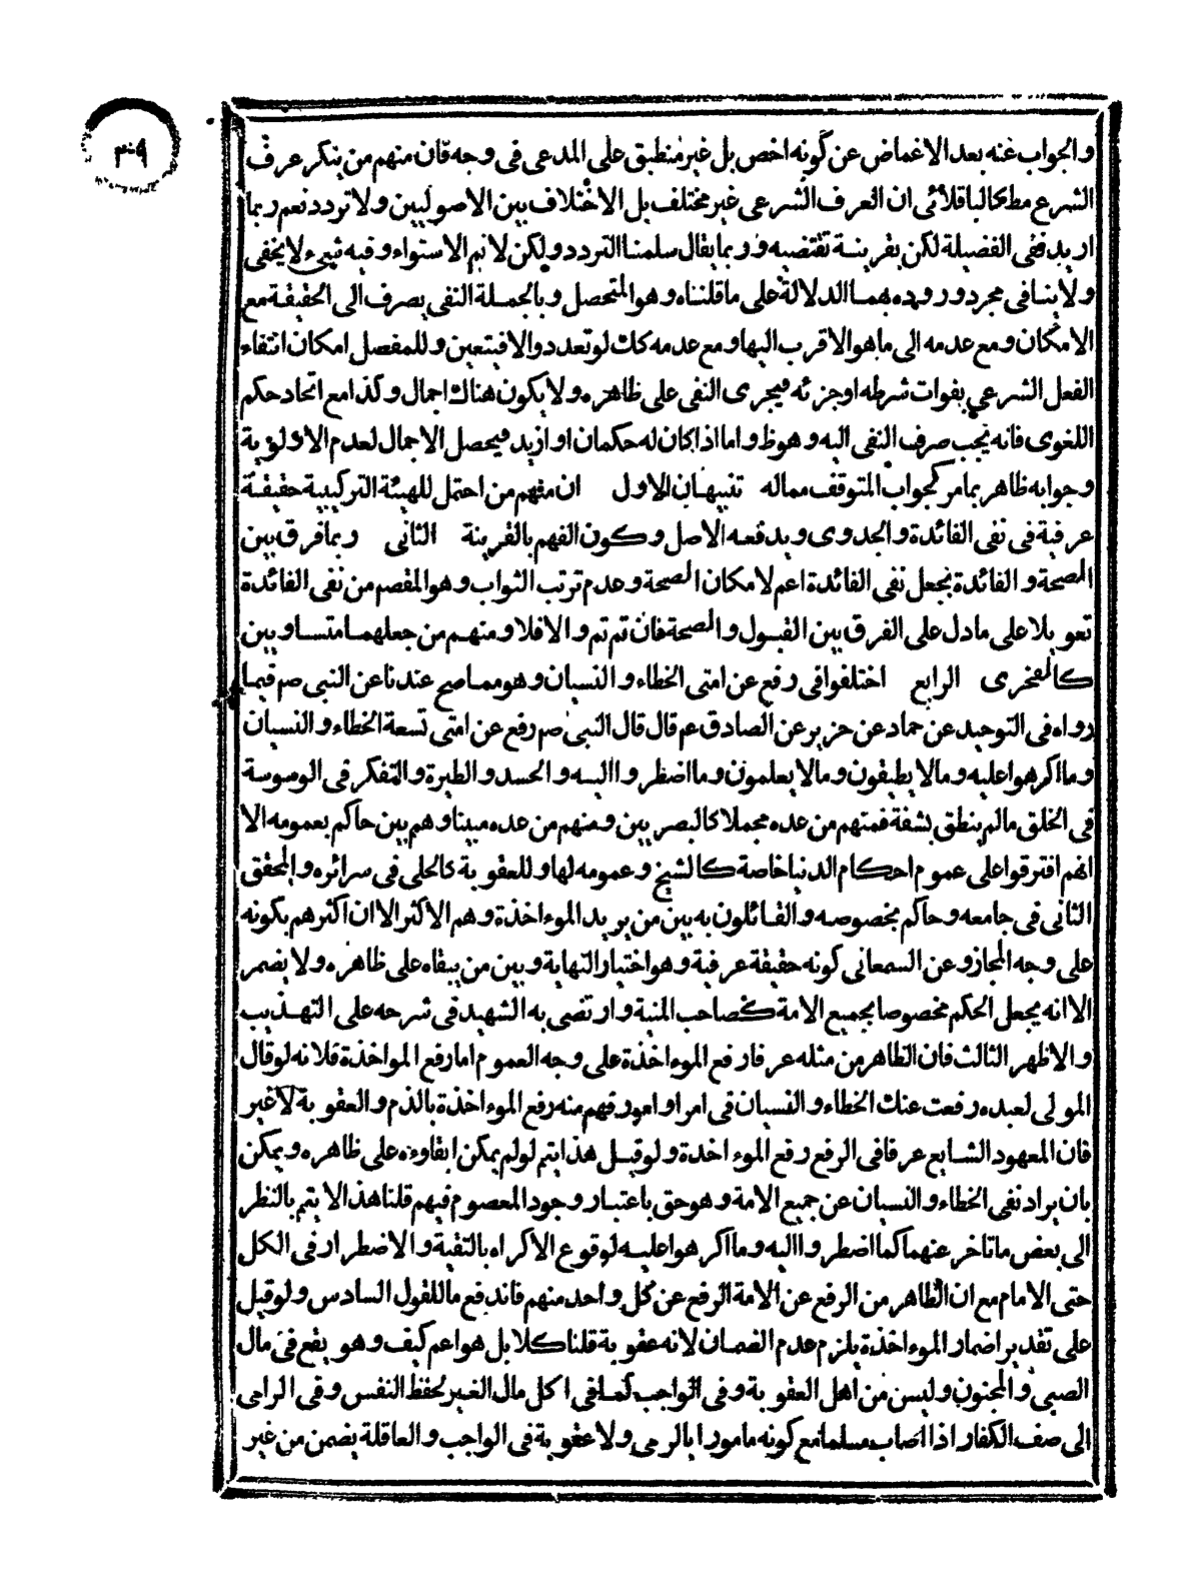 ٣٠٩
والجواب عنه بعد الاغماض عن كونه اخص بل غير منطبق على المدعى فى وجه فان منهم من ينكر عرف
الشرع مط كالباقلانى ان العرف الشرعى غير مختلف بل الاختلاف بين الاصوليين ولا تردد نعم ربما
اريد نفى الفضيلة لكن بقرينة تقتضيه وربما يقال سلمنا التردد ولكن لانم الاستواء وفيه شىء لا يخفى
ولا ينافى مجرد وروده بهما الدلالة على ما قلناه وهو المتحصل وبالجملة النفى يصرف الى الحقيقة مع
الامكان ومع عدمه الى ما هو الاقرب اليها ومع عدمه كك لو تعدد والا فيتعين وللمفصل امكان انتفاء
الفعل الشرعى بفوات شرطه او جزئه فيجرى النفى على ظاهره ولا يكون هناك اجمال وكذا مع اتحاد حكم
اللغوى فانه يجب صرف النفى اليه وهو ظ واما اذا كان له حكمان او ازيد فيحصل الاجمال لعدم الاولوية
وجوابه ظاهر بما مر كجواب المتوقف مماله تنبيهان الاول ان منهم من احتمل للهيئة التركيبية حقيقة
عرفية فى نفى الفائدة والجدوى ويدفعه الاصل وكون الفهم بالقرينة الثانى ربما فرق بين
الصحة والفائدة بجعل نفى الفائدة اعم لامكان الصحة وعدم ترتب الثواب وهو المقصم من نفى الفائدة
تعويلا على ما دل على الفرق بين القبول والصحة فان تم تم والا فلا ومنهم من جعلهما متساويين
كالفخرى الرابع اختلفوا فى رفع عن امتى الخطاء والنسيان وهو مما صح عندنا عن النبى صم فيما
رواه فى التوحيد عن حماد عن حريز عن الصادق عم قال قال النبى صم رفع عن امتى تسعة الخطاء والنسيان
وما اكرهوا عليه وما لا يطيقون وما لا يعلمون وما اضطروا اليه والحسد والطيرة والتفكر فى الوسوسة
فى الخلق ما لم ينطق بشفة فمنهم من عده مجملا كالبصريين ومنهم من عده مبينا وهم بين حاكم بعمومه الا
انهم افترقوا على عموم احكام الدنيا خاصة كالشيخ وعمومه لها وللعقوبة كالحلى فى سرائره والمحقق
الثانى فى جامعه وحاكم بخصوصه والقائلون به بين من يريد المؤاخذة وهم الاكثر الا ان اكثرهم بكونه
على وجه المجاز وعن السمعانى كونه حقيقة عرفية وهو اختيار النهاية وبين من يبقاه على ظاهره ولا يضمر
الا انه يجعل الحكم مخصوصا بجميع الامة كصاحب المنية وارتضى به الشهيد فى شرحه على التهذيب
والاظهر الثالث فان الظاهر من مثله عرفا رفع المؤاخذة على وجه العموم اما رفع المواخذة فلانه لو قال
المولى لعبده رفعت عنك الخطاء والنسيان فى امر او امور فهم منه رفع المؤاخذة بالذم والعقوبة لا غير
فان المعهود الشايع عرفا فى الرفع رفع المؤاخذة ولو قيل هذا يتم لو لم يمكن ابقاؤه على ظاهره ويمكن
بان يراد نفى الخطاء والنسيان عن جميع الامة وهو حق باعتبار وجود المعصوم فيهم قلنا هذا لا يتم بالنظر
الى بعض ما تاخر عنهما كما اضطروا اليه وما اكرهوا عليه لوقوع الاكراه بالتقية والاضطرار فى الكل
حتى الامام مع ان الظاهر من الرفع عن الامة الرفع عن كل واحد منهم فاندفع ما للقول السادس ولو قيل
على تقدير اضمار المؤاخذة يلزم عدم الضمان لانه عقوبة قلنا كلا بل هو اعم كيف وهو يقع فى مال
الصبى والمجنون وليس من اهل العقوبة وفى الواجب كما فى اكل مال الغير لحفظ النفس وفى الرامى
الى صف الكفار اذا اصاب مسلما مع كونه مامورا بالرمى ولا عقوبة فى الواجب والعاقلة يضمن من غير